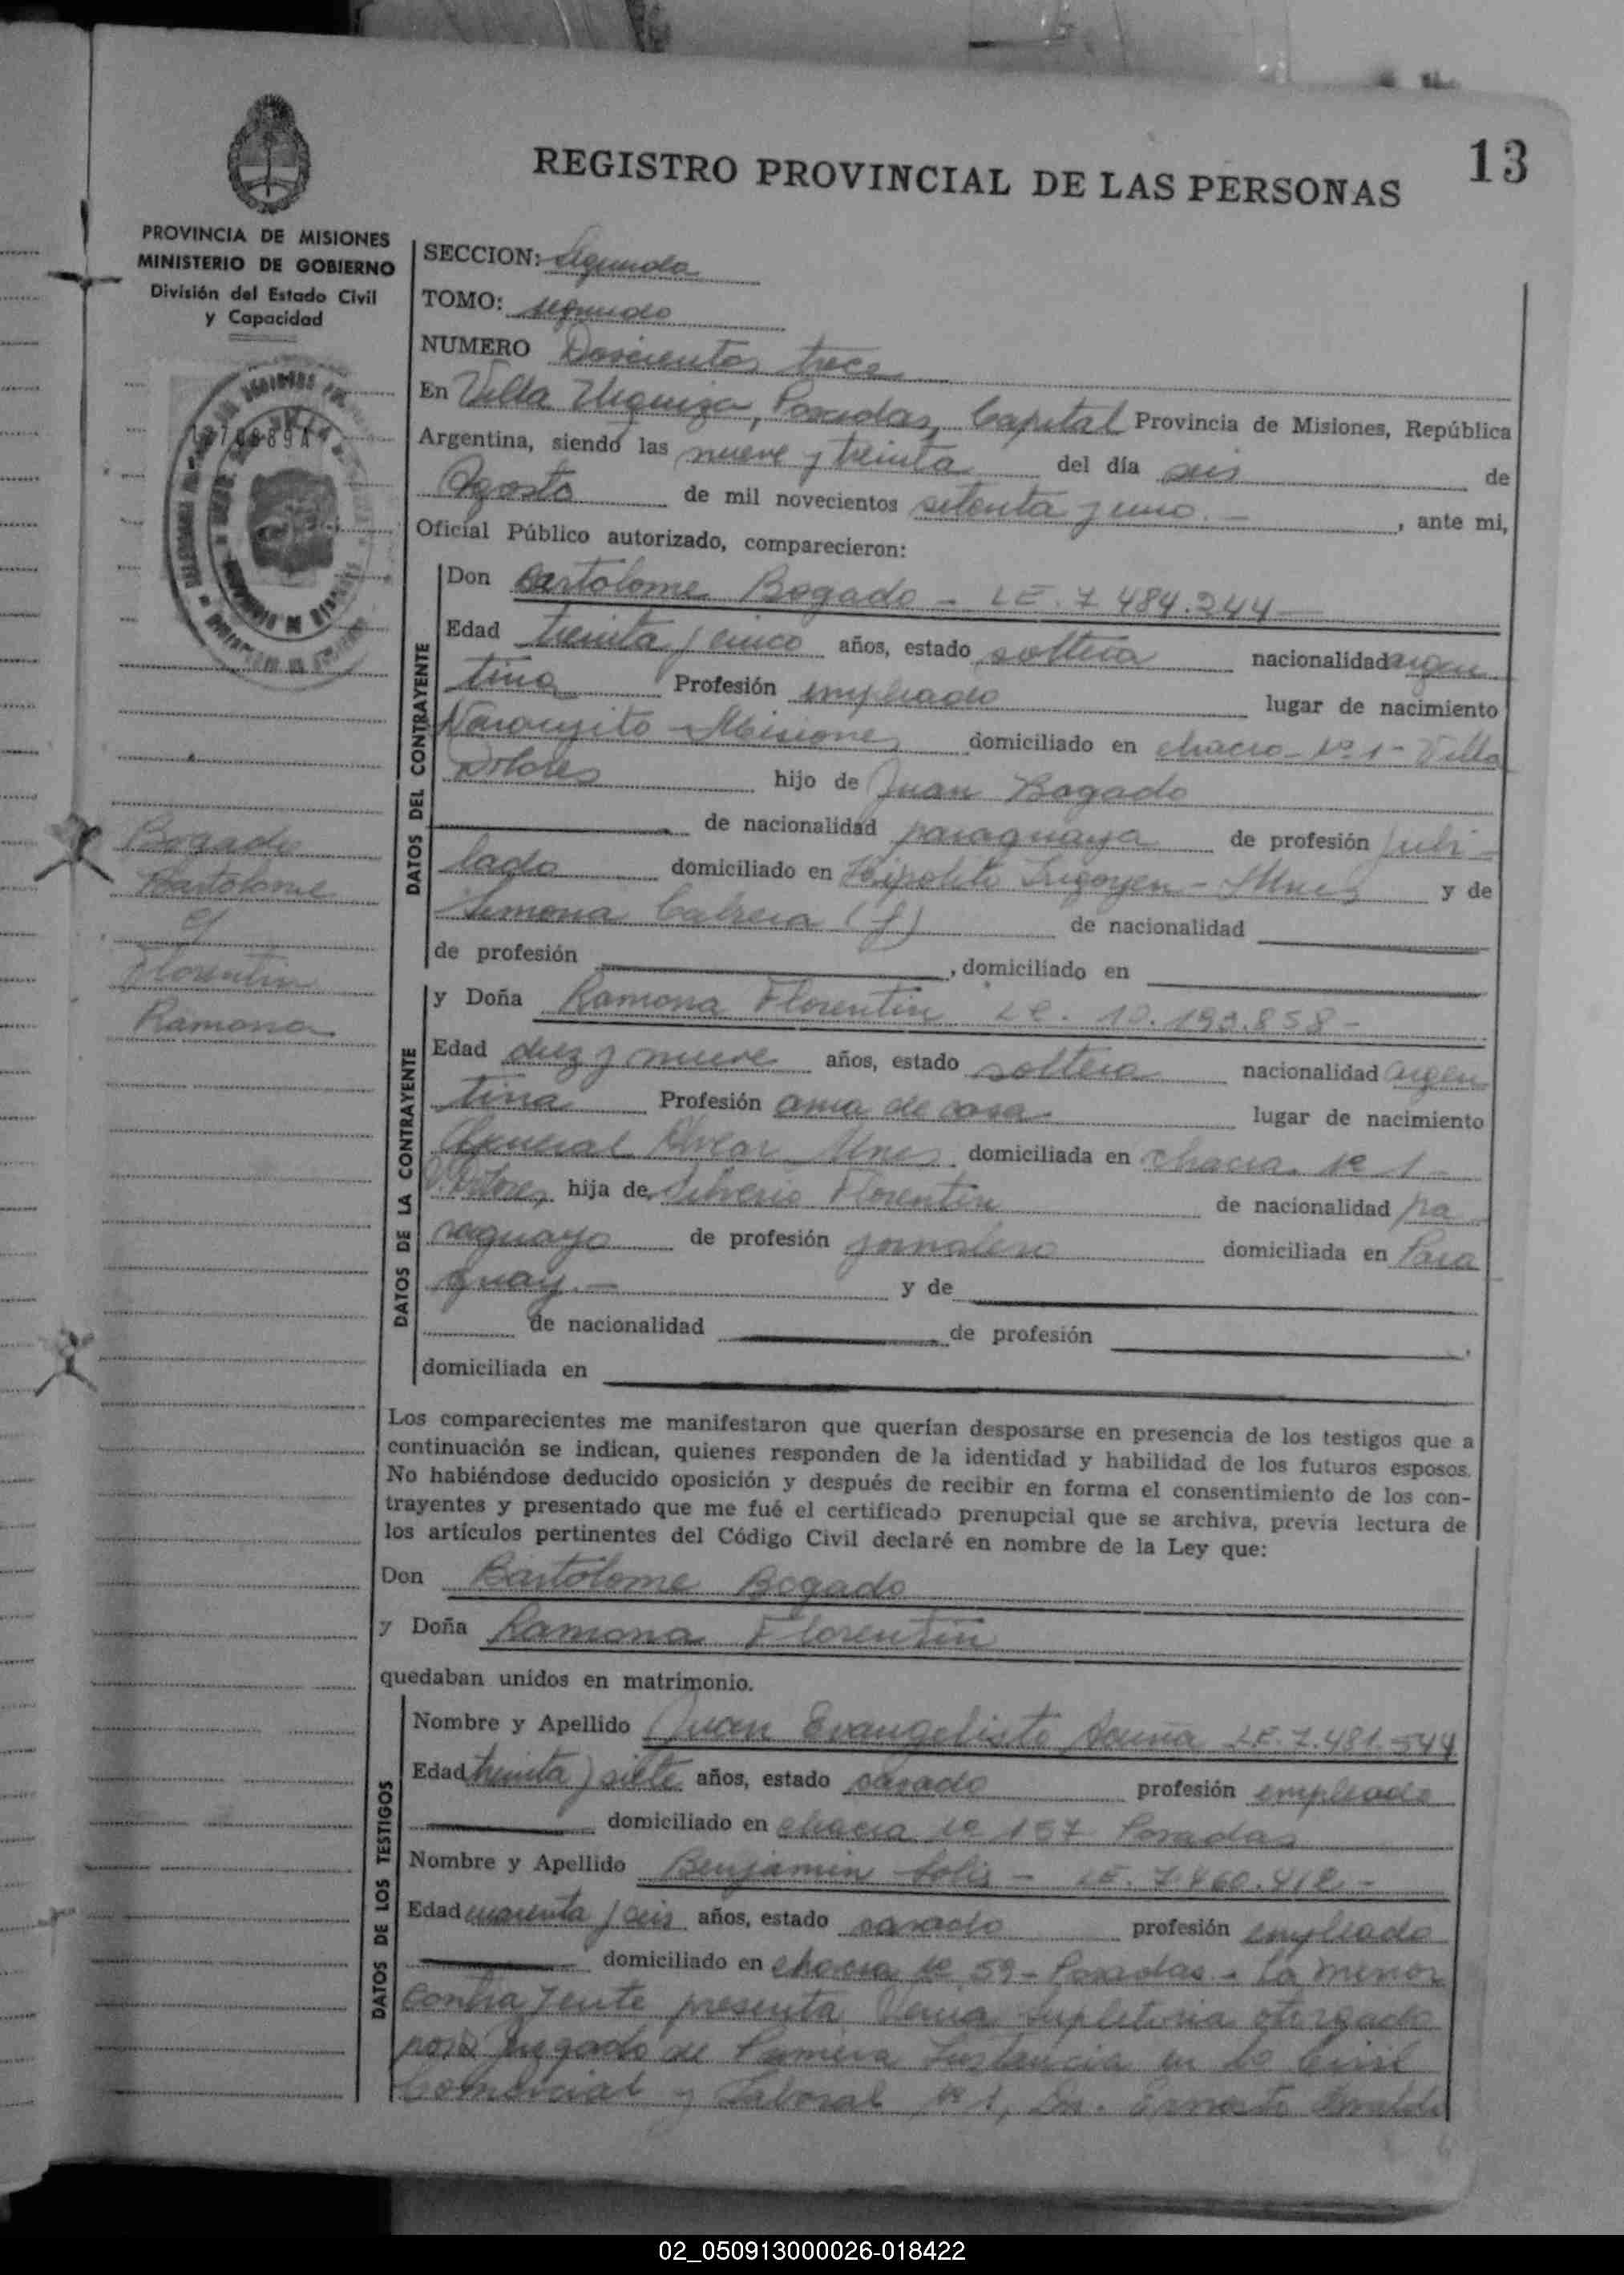 13
REGISTRO PROVINCIAL DE LAS PERSONAS
PROVINCIA DE MISIONES
MINISTERIO DE GOBIERNO
División del Estado Civil
y Capacidad
SECCION: Segunda
TOMO: segundo
NUMERO Doscientos trece
En Villa Urquiza, Posadas, Capital Provincia de Misiones, República
Argentina, siendo las nueve y treinta del día seis de
Agosto de mil novecientos setenta y uno.- , ante mi,
Oficial Público autorizado, comparecieron:
DATOS DEL CONTRAYENTE
Don Bartolome Bogado - LE. 7.484.244
Edad treinta y cinco años, estado soltero nacionalidad argen
tina Profesión empleado lugar de nacimiento
Naranjito - Misiones domiciliado en chacra Nº 1 - Villa
Dolores hijo de Juan Bogado
de nacionalidad paraguaya de profesión jubi-
lado domiciliado en Hipolito Irigoyen - Mnes y de
Simona Cabrera (f) de nacionalidad
de profesión , domiciliado en
Bogado
Bartolome
c/
Florentin
Ramona
DATOS DE LA CONTRAYENTE
y Doña Ramona Florentin LC. 10.192.858-
Edad diez y nueve años, estado soltera nacionalidad argen
tina Profesión ama de casa lugar de nacimiento
General Alvear Mnes domiciliada en chacra Nº 1-
V. Dolores, hija de Silverio Florentin de nacionalidad pa
raguayo de profesión jornalero domiciliada en Para
guay.- y de
de nacionalidad de profesión ,
domiciliada en
Los comparecientes me manifestaron que querían desposarse en presencia de los testigos que a
continuación se indican, quienes responden de la identidad y habilidad de los futuros esposos.
No habiéndose deducido oposición y después de recibir en forma el consentimiento de los con-
trayentes y presentado que me fué el certificado prenupcial que se archiva, previa lectura de
los artículos pertinentes del Código Civil declaré en nombre de la Ley que:
Don Bartolome Bogado
y Doña Ramona Florentin
quedaban unidos en matrimonio.
DATOS DE LOS TESTIGOS
Nombre y Apellido Juan Evangelista Acuña LE. 7.481.544
Edad treinta y siete años, estado casado profesión empleado
domiciliado en chacra Nº 157 Posadas
Nombre y Apellido Benjamin Solis - LE.
Edad cuarenta y seis años, estado casado profesión empleado
domiciliado en chacra Nº 59 - Posadas - La menor
contrayente presenta Venia Supletoria otorgada
por Juzgado de Primera Instancia en lo Civil
Comercial y Laboral Nº 1, Dr. Ernesto
02_050913000026-018422